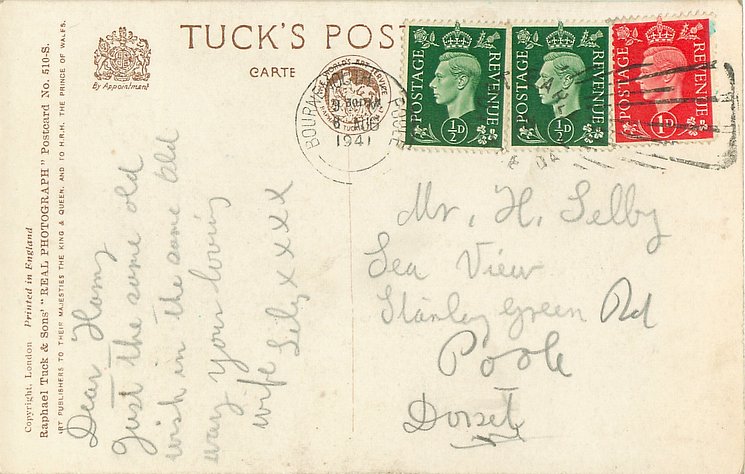 TUCK'S POST
CARTE
By Appointment
BOURNEMOUTH POOLE
8 AUG
1941
POSTAGE REVENUE
½D
POSTAGE REVENUE
½D
POSTAGE REVENUE
1D
Copyright. London Printed in England
Raphael Tuck & Sons' "REAL PHOTOGRAPH" Postcard No. 510-S.
ART PUBLISHERS TO THEIR MAJESTIES THE KING & QUEEN, AND TO H.R.H. THE PRINCE OF WALES.
Dear Harry
Just the same old
wish in the same old
way your loving
wife Lily x x x x
Mr. H. Selby
Sea View
Stanley Green Rd
Poole
Dorset